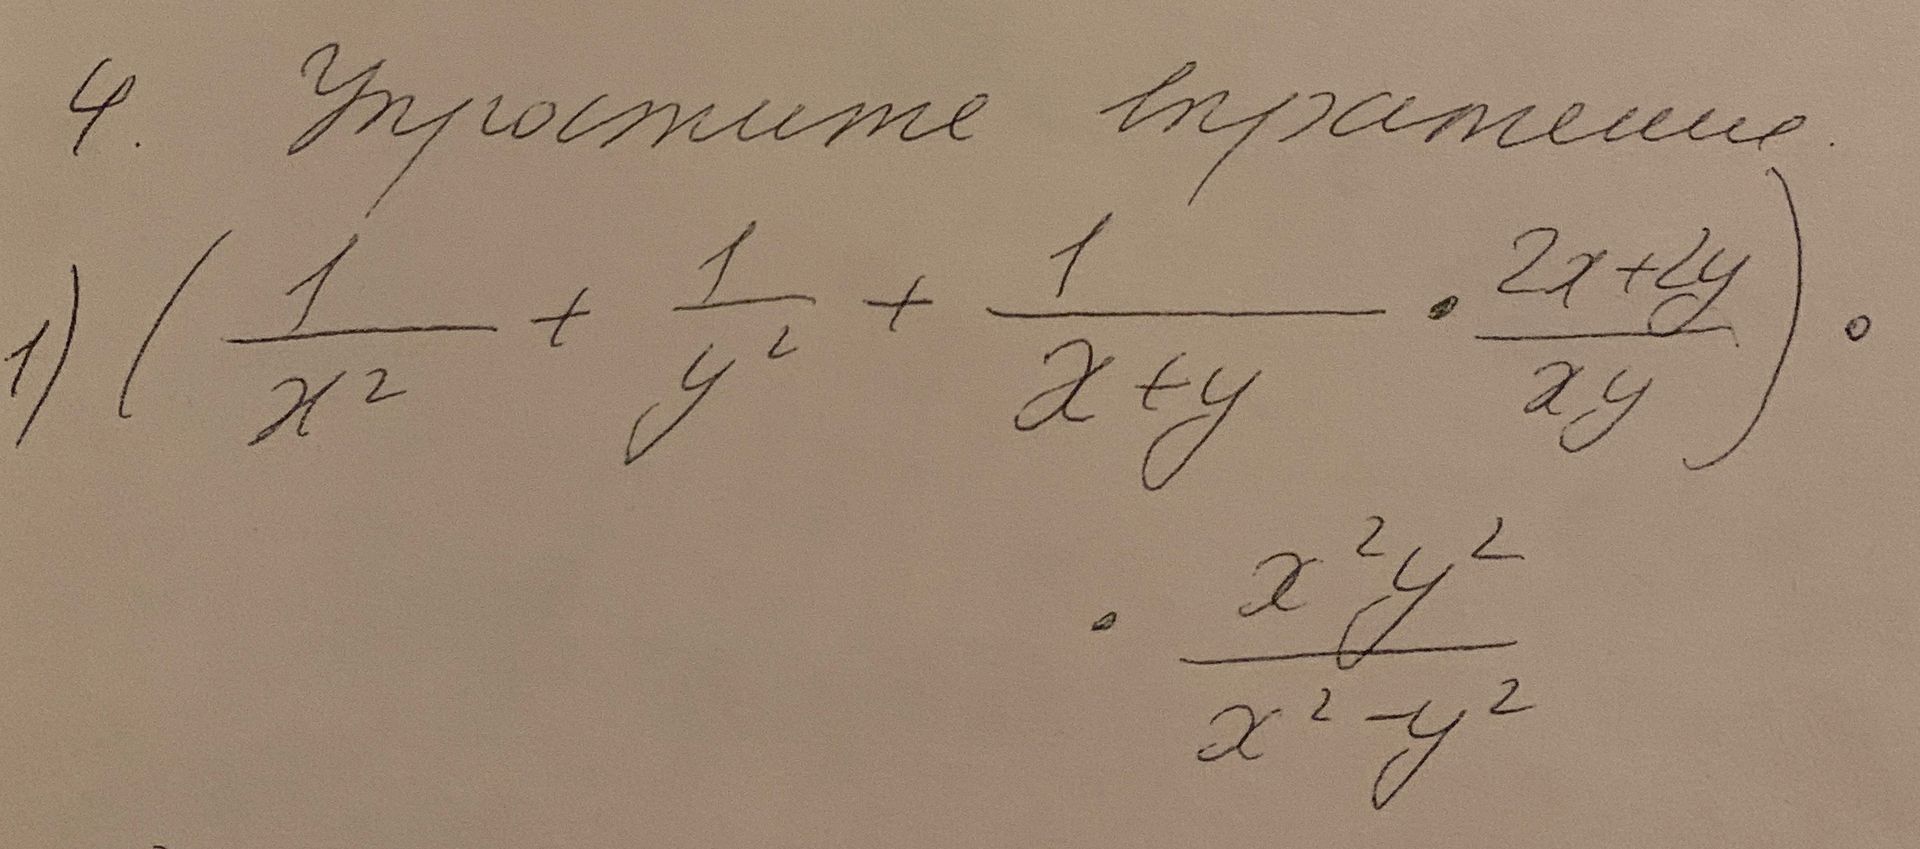 4. Упростите выражение.
1) (1/x² + 1/y² + 1/(x+y) · (2x+2y)/(xy)) ·
· x²y²/(x²-y²)